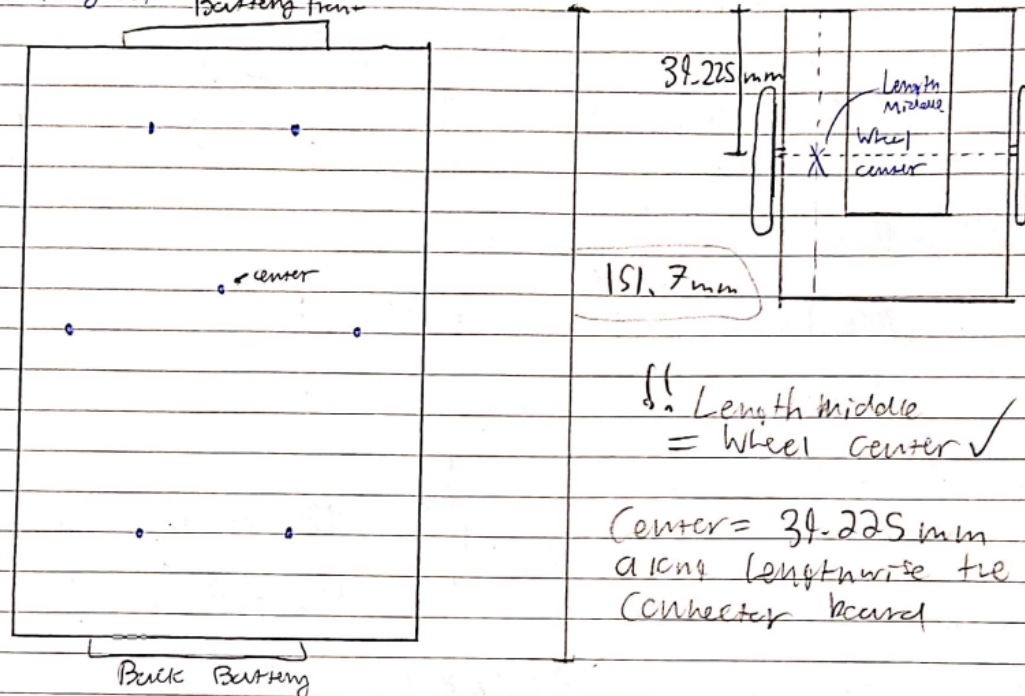 Battery front
center
Back Battery
34.225 mm
Length
Middle
Wheel
center
151.7mm
!! Length middle
= Wheel center ✓
Center = 34.225 mm
along lengthwise the
Connector board